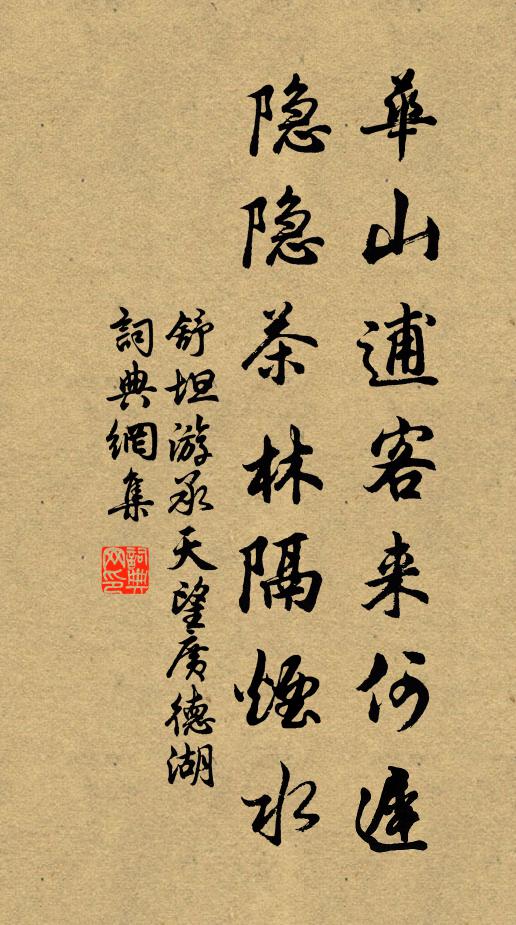 華山逋客来何遲
隐隐茶林隔煙水
舒坦游承天望广德湖
詞典網集
詞典网印